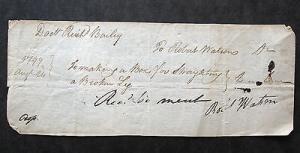 Doctr Richd Bailey
To Robert Watson Dr
1799
Augt 24
To making a Box for Straighting
a Broken Leg
Recd
ment
Robt Watson